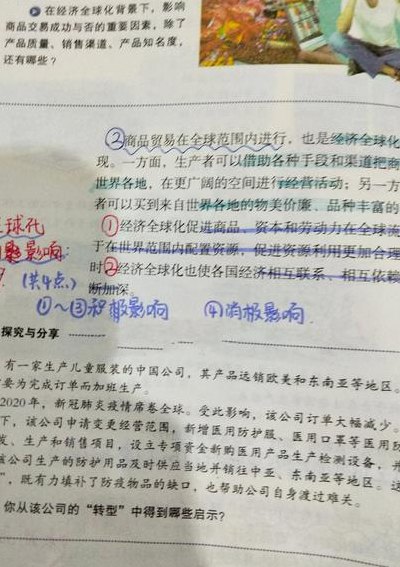 在经济全球化背景下，影响
商品交易成功与否的重要因素，除了
产品质量、销售渠道、产品知名度，
还有哪些？
③商品贸易在全球范围内进行，也是经济全球化
现。一方面，生产者可以借助各种手段和渠道把商
世界各地，在更广阔的空间进行经营活动；另一方
者可以买到来自世界各地的物美价廉、品种丰富的
①经济全球化促进商品、资本和劳动力在全球流
于在世界范围内配置资源，促进资源利用更加合理
时②经济全球化也使各国经济相互联系、相互依赖
断加深。
球化
影响：
(共4点)
①～③积极影响 ④消极影响
探究与分享
有一家生产儿童服装的中国公司，其产品远销欧美和东南亚等地区。
要为完成订单而加班生产。
2020年，新冠肺炎疫情席卷全球。受此影响，该公司订单大幅减少。
下，该公司申请变更经营范围，新增医用防护服、医用口罩等医用防
发、生产和销售项目，设立专项资金新购医用产品生产检测设备，并
该公司生产的防护用品及时供应当地并销往中亚、东南亚等地区。这
”，既有力填补了防疫物品的缺口，也帮助公司自身渡过难关。
你从该公司的“转型”中得到哪些启示？